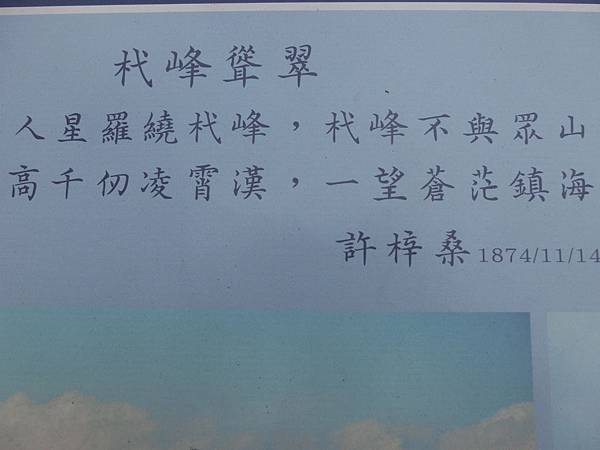 杙峰聳翠
人星羅繞杙峰，杙峰不與眾山
高千仞凌霄漢，一望蒼茫鎮海
許梓桑1874/11/14